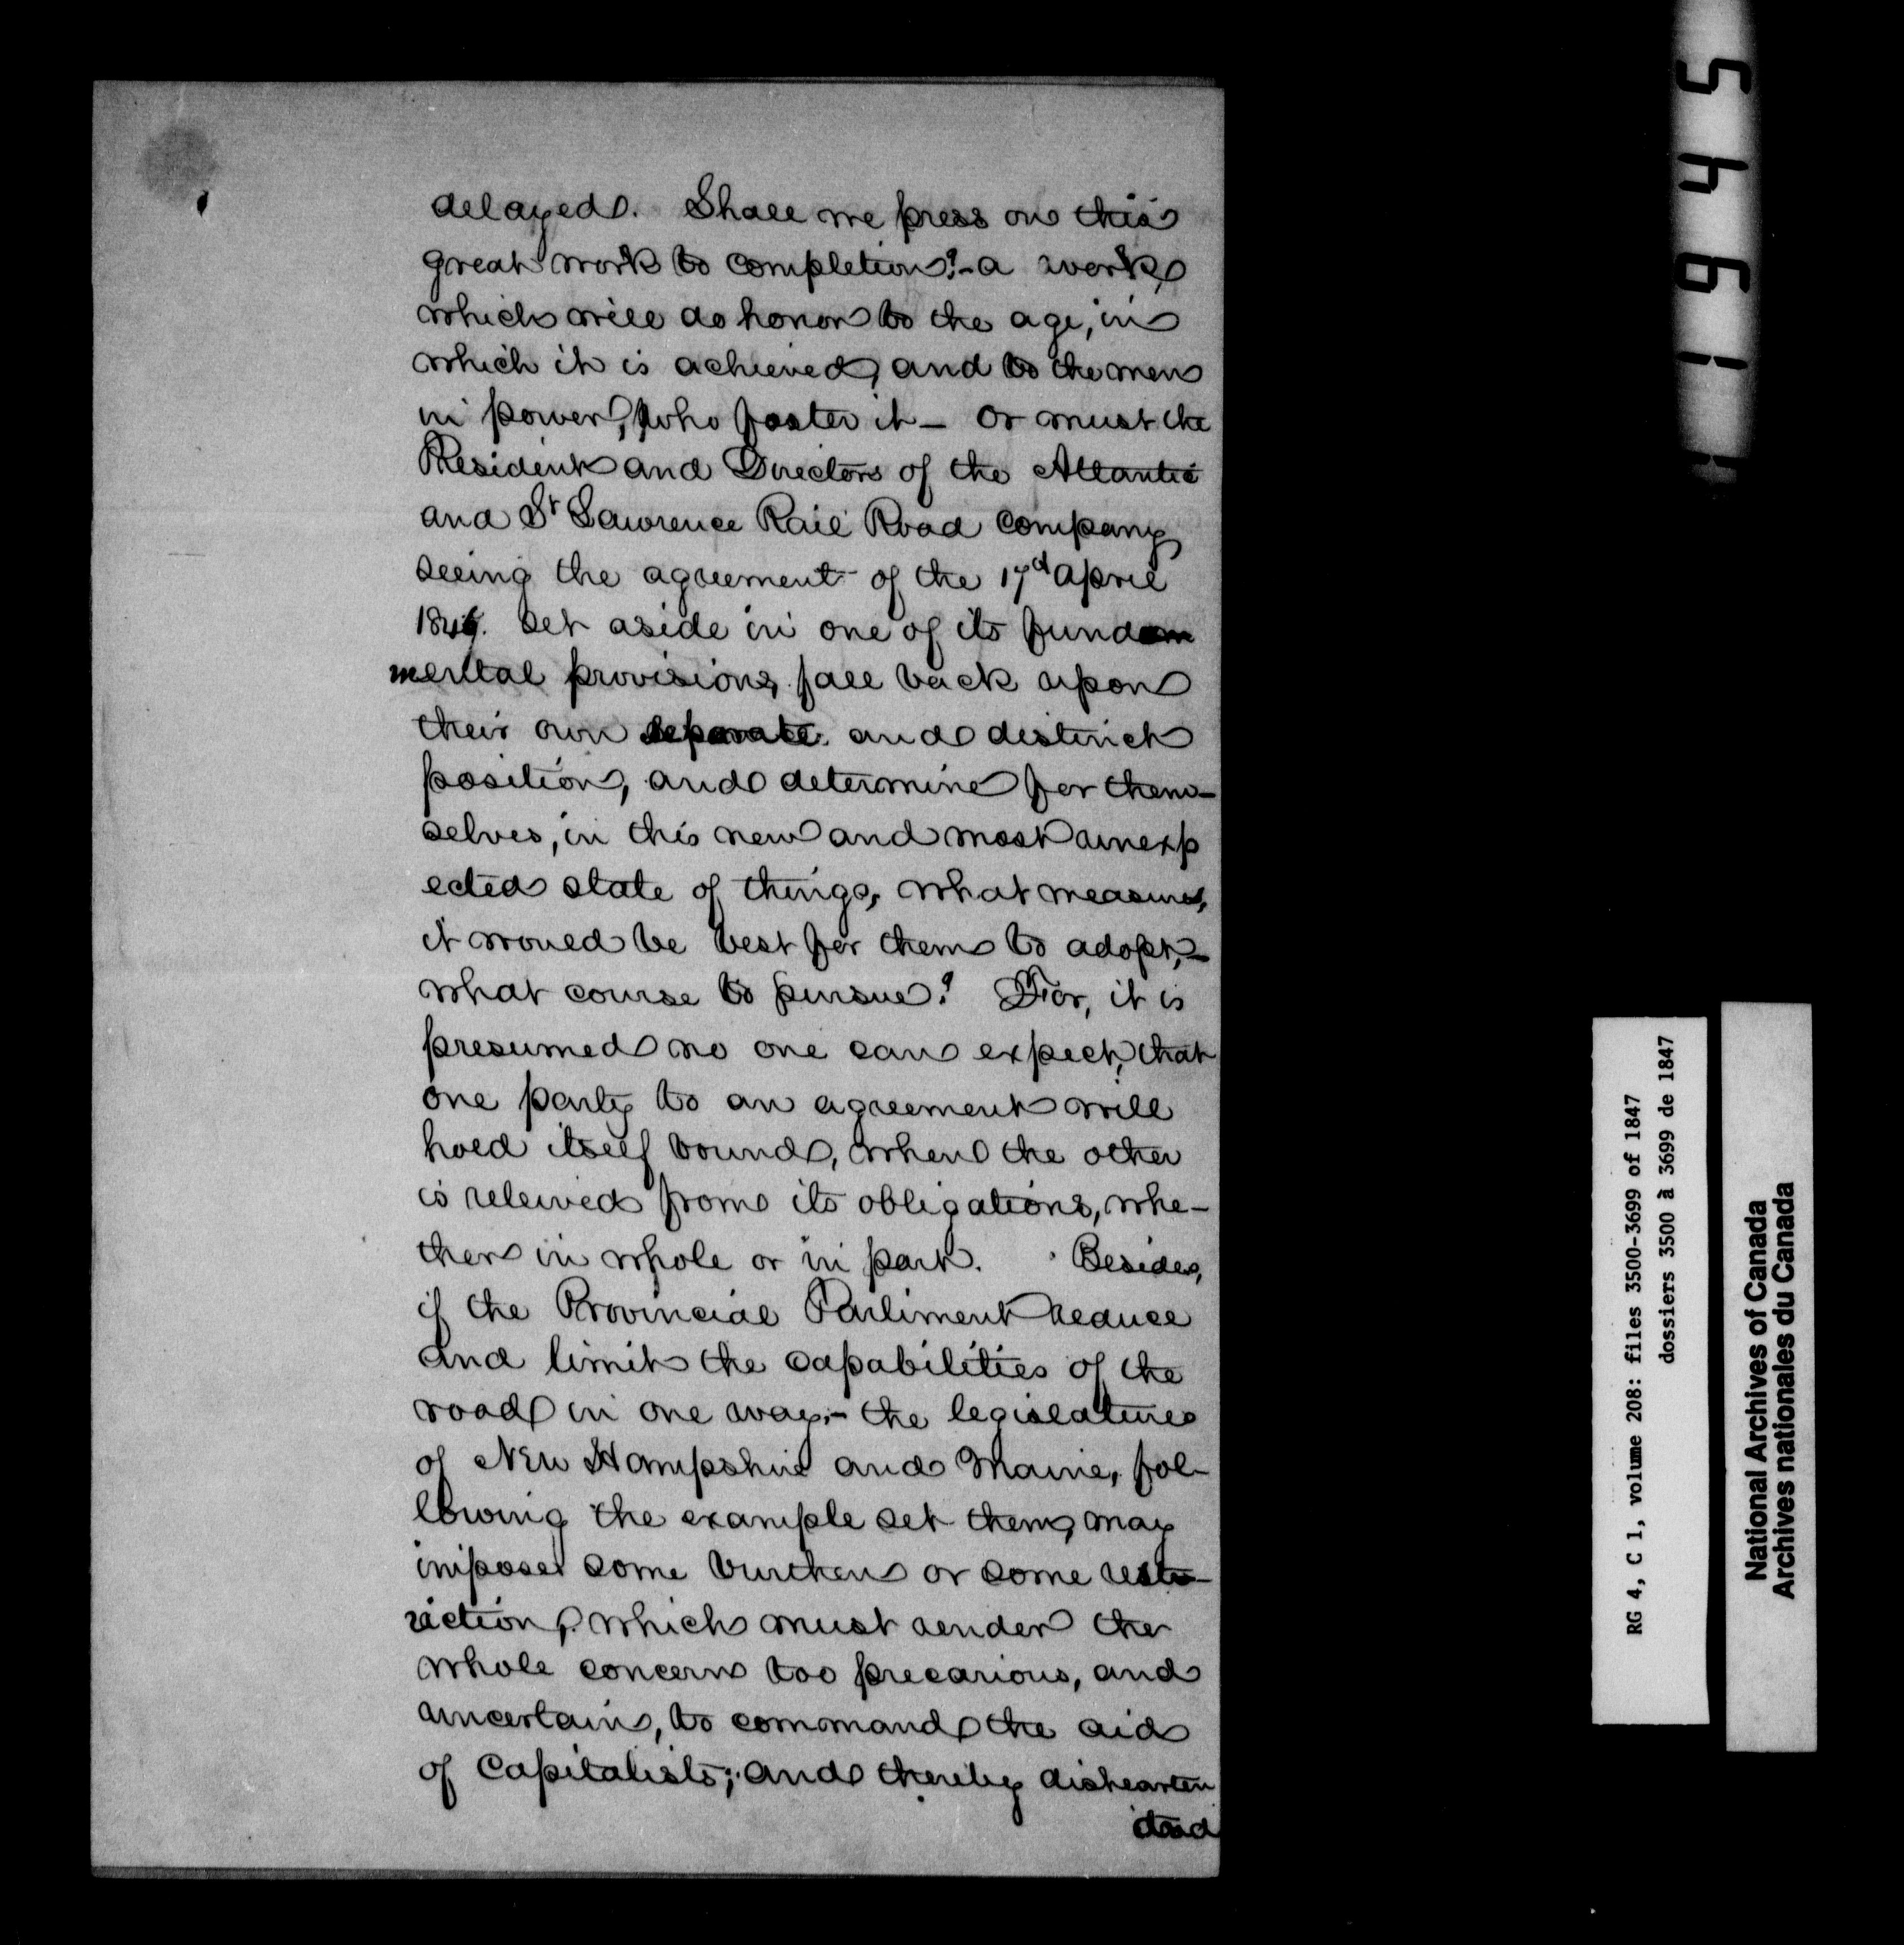 delayed. Shall we press on this
great work to completion?-a work
which will do honor to the age, in
which it is achieved, and to the men
in power, who foster it – or must the
President and Directors of the Atlantic
and St Lawrence Rail Road Company
seeing the agreement of the 17d April
1846. set aside in one of its fundam
mental provisions, fall back upon
their own separate and distinct
position, and determine for them-
selves, in this new and most unexp
ected state of things, what measures,
it would be best for them to adopt,-
what course to pursue? For, it is
presumed no one can expect, that
one party to an agreement will
hold itself bound, when the other
is releived from its obligations, whe-
ther in whole or in part. Besides,
if the Provincial Parliment reduce
and limit the capabilities of the
road in one way,- the legislatures
of New Hampshire and Maine, fol-
lowing the example set them, may
impose some burthen or some rest-
riction, which must render the
whole concern too precarious, and
uncertain, to command the aid
of Capitalists; and thereby dishearten
5491
RG 4, C 1, volume 208: files 3500-3699 of 1847
dossiers 3500 à 3699 de 1847
National Archives of Canada
Archives nationales du Canada